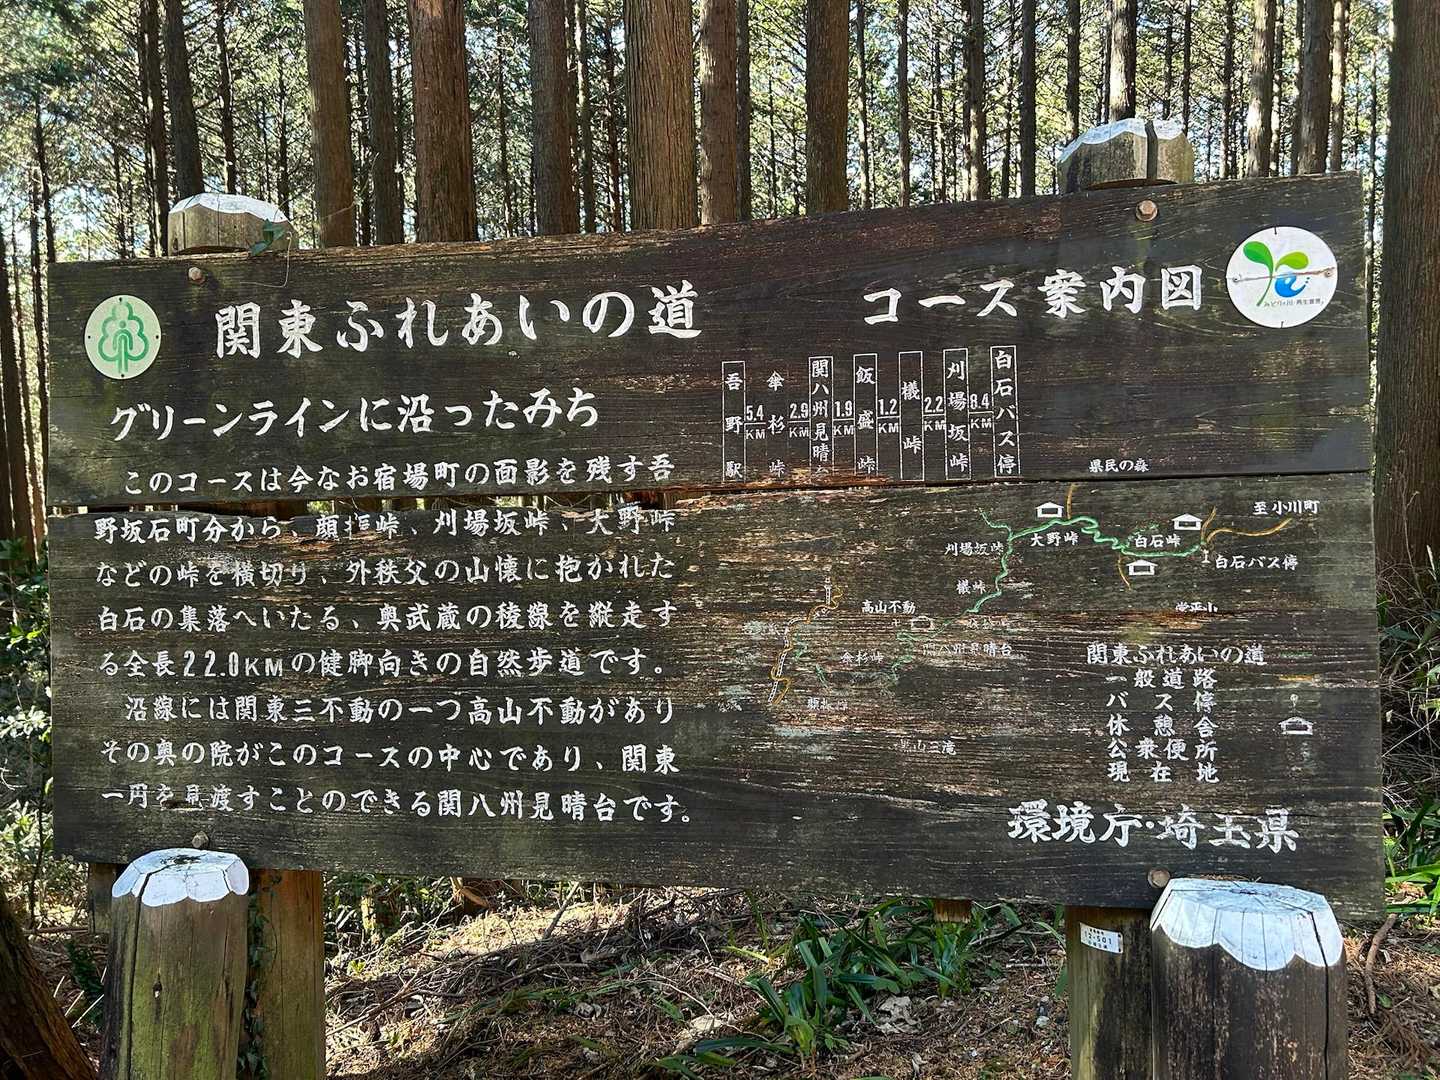 関東ふれあいの道
コース案内図
グリーンラインに沿ったみち
このコースは今なお宿場町の面影を残す吾
野坂石町分から、顔振峠、刈場坂峠、大野峠
などの峠を横切り、外秩父の山懐に抱かれた
白石の集落へいたる、奥武蔵の稜線を縦走す
る全長22.0KMの健脚向きの自然歩道です。
沿線には関東三不動の一つ高山不動があり
その奥の院がこのコースの中心であり、関東
一円を見渡すことのできる関八州見晴台です。
吾野駅
5.4KM
傘杉峠
2.9KM
関八州見晴台
1.9KM
飯盛峠
1.2KM
檥峠
2.2KM
刈場坂峠
8.4KM
白石バス停
県民の森
至小川町
大野峠
白石峠
刈場坂峠
白石バス停
檥峠
堂平山
高山不動
関八州見晴台
傘杉峠
黒山三滝
関東ふれあいの道
一般道路
バス停
休憩舎
公衆便所
現在地
環境庁・埼玉県
12-501